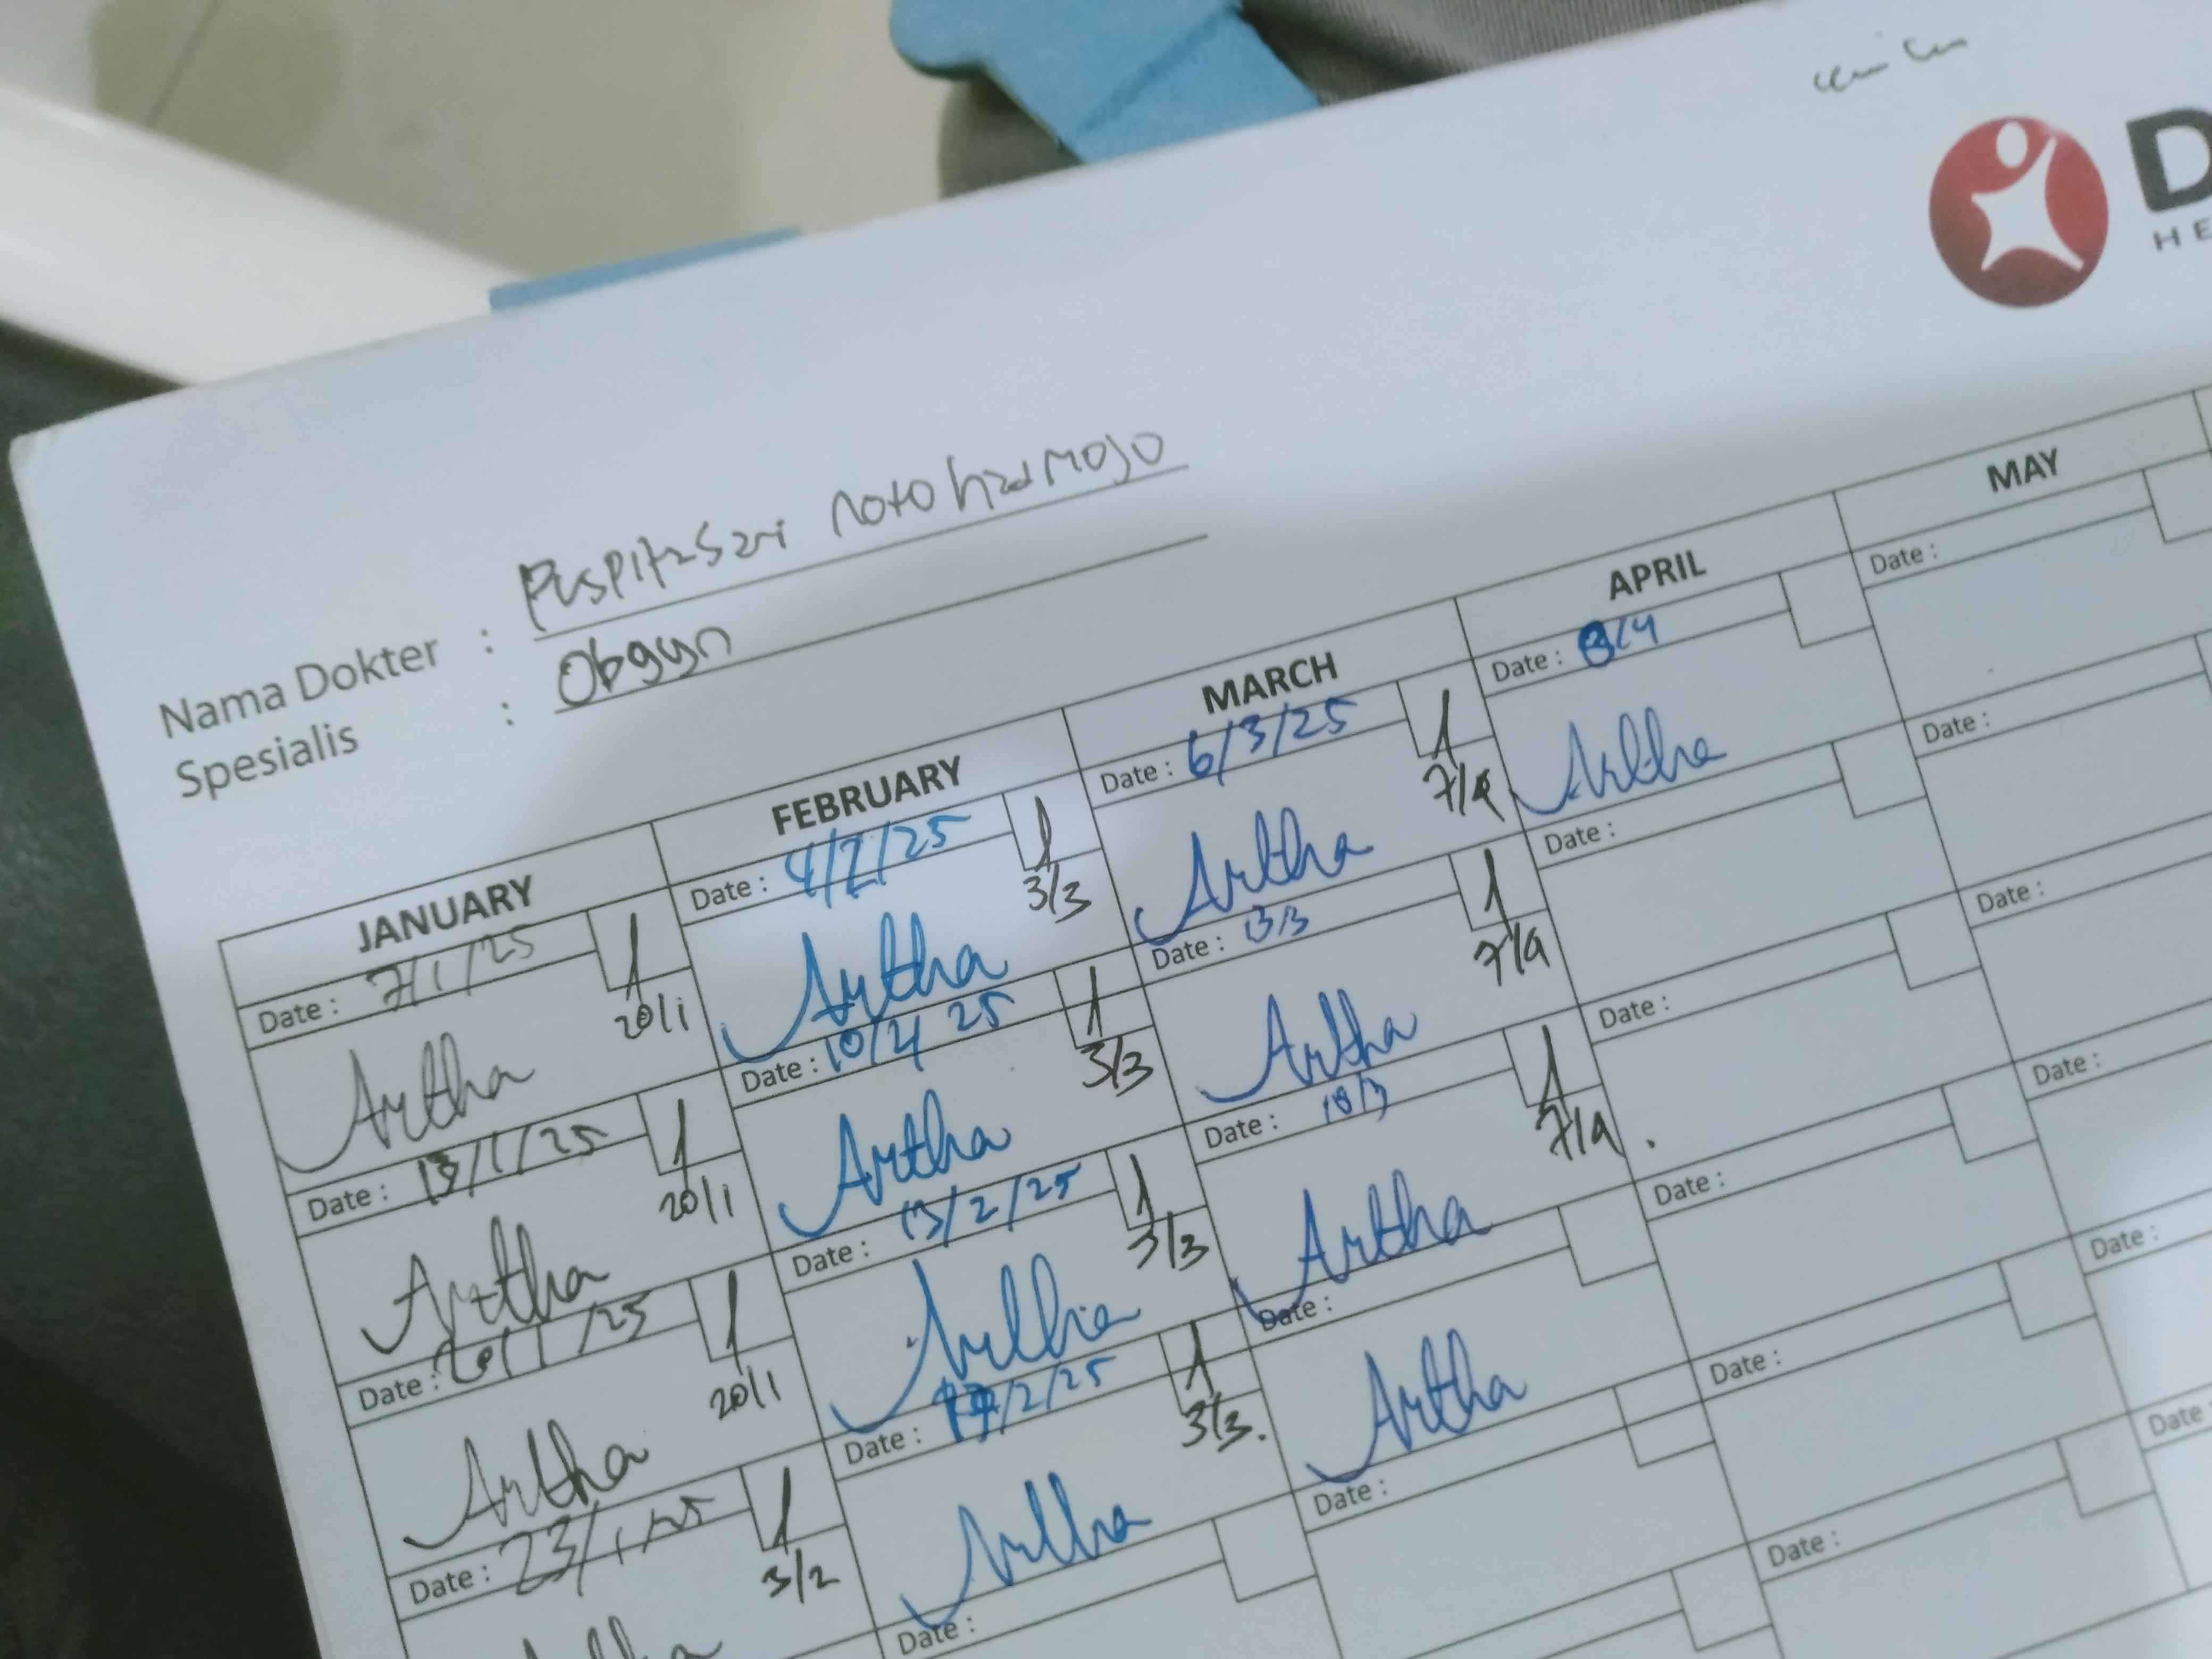 D
HE
Nama Dokter : Puspitasari notohadmojo
Spesialis : Obgyn
JANUARY FEBRUARY MARCH APRIL MAY
Date : 7/1/25
20/1
Artha
Date : 13/1/25
20/1
Artha
Date : 20/1/25
20/1
Artha
Date : 23/1/25
3/2
Date : 4/2/25
3/3
Artha
Date : 10/2 25
3/3
Artha
Date : 13/2/25
3/3
Artha
Date : /2/25
3/3.
Artha
Date :
Date : 6/3/25
7/4
Artha
Date : 13/3
7/4
Artha
Date : 18/3
7/4.
Artha
Date :
Artha
Date :
Date : 8/4
Artha
Date :
Date :
Date :
Date :
Date :
Date :
Date :
Date :
Date :
Date :
Date :